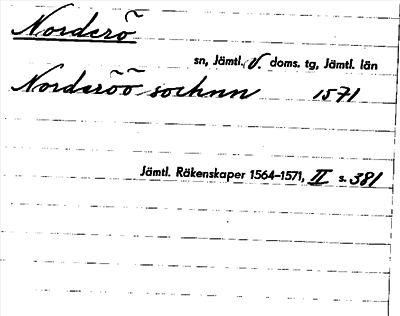 Norderö
sn, Jämtl. V. doms. tg, Jämtl. län
Norderöö sochnn 1571
Jämtl. Räkenskaper 1564–1571, II s. 381